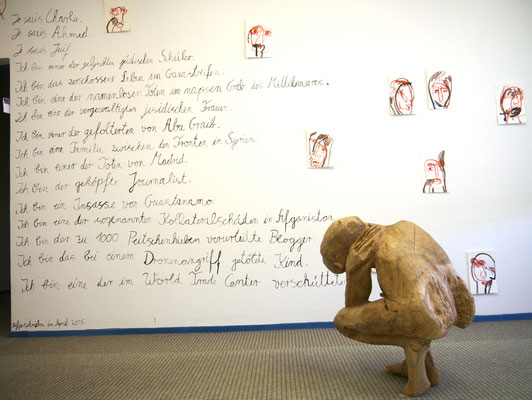 Je suis Charlie.
Je suis Ahmed.
Je suis Juif.
Ich bin einer der gelynchten jüdischen Schüler.
Ich bin das zerschossene Leben im Gazastreifen.
Ich bin eine der namenlosen Toten im nassen Grab des Mittelmeers.
Ich bin eine der vergewaltigten jesidischen Frauen.
Ich bin einer der gefolterten von Abu Graib.
Ich bin eine Familie zwischen den Fronten in Syrien.
Ich bin einer der Toten von Madrid.
Ich bin der geköpfte Journalist.
Ich bin ein Insasse von Guantanamo.
Ich bin eine der sogenannten Kollateralschäden in Afganistan.
Ich bin der zu 1000 Peitschenhieben verurteilte Blogger.
Ich bin das bei einem Dronenangriff getötete Kind.
Ich bin eine der im World Trade Center verschütteten
aufgeschrieben im April 2015